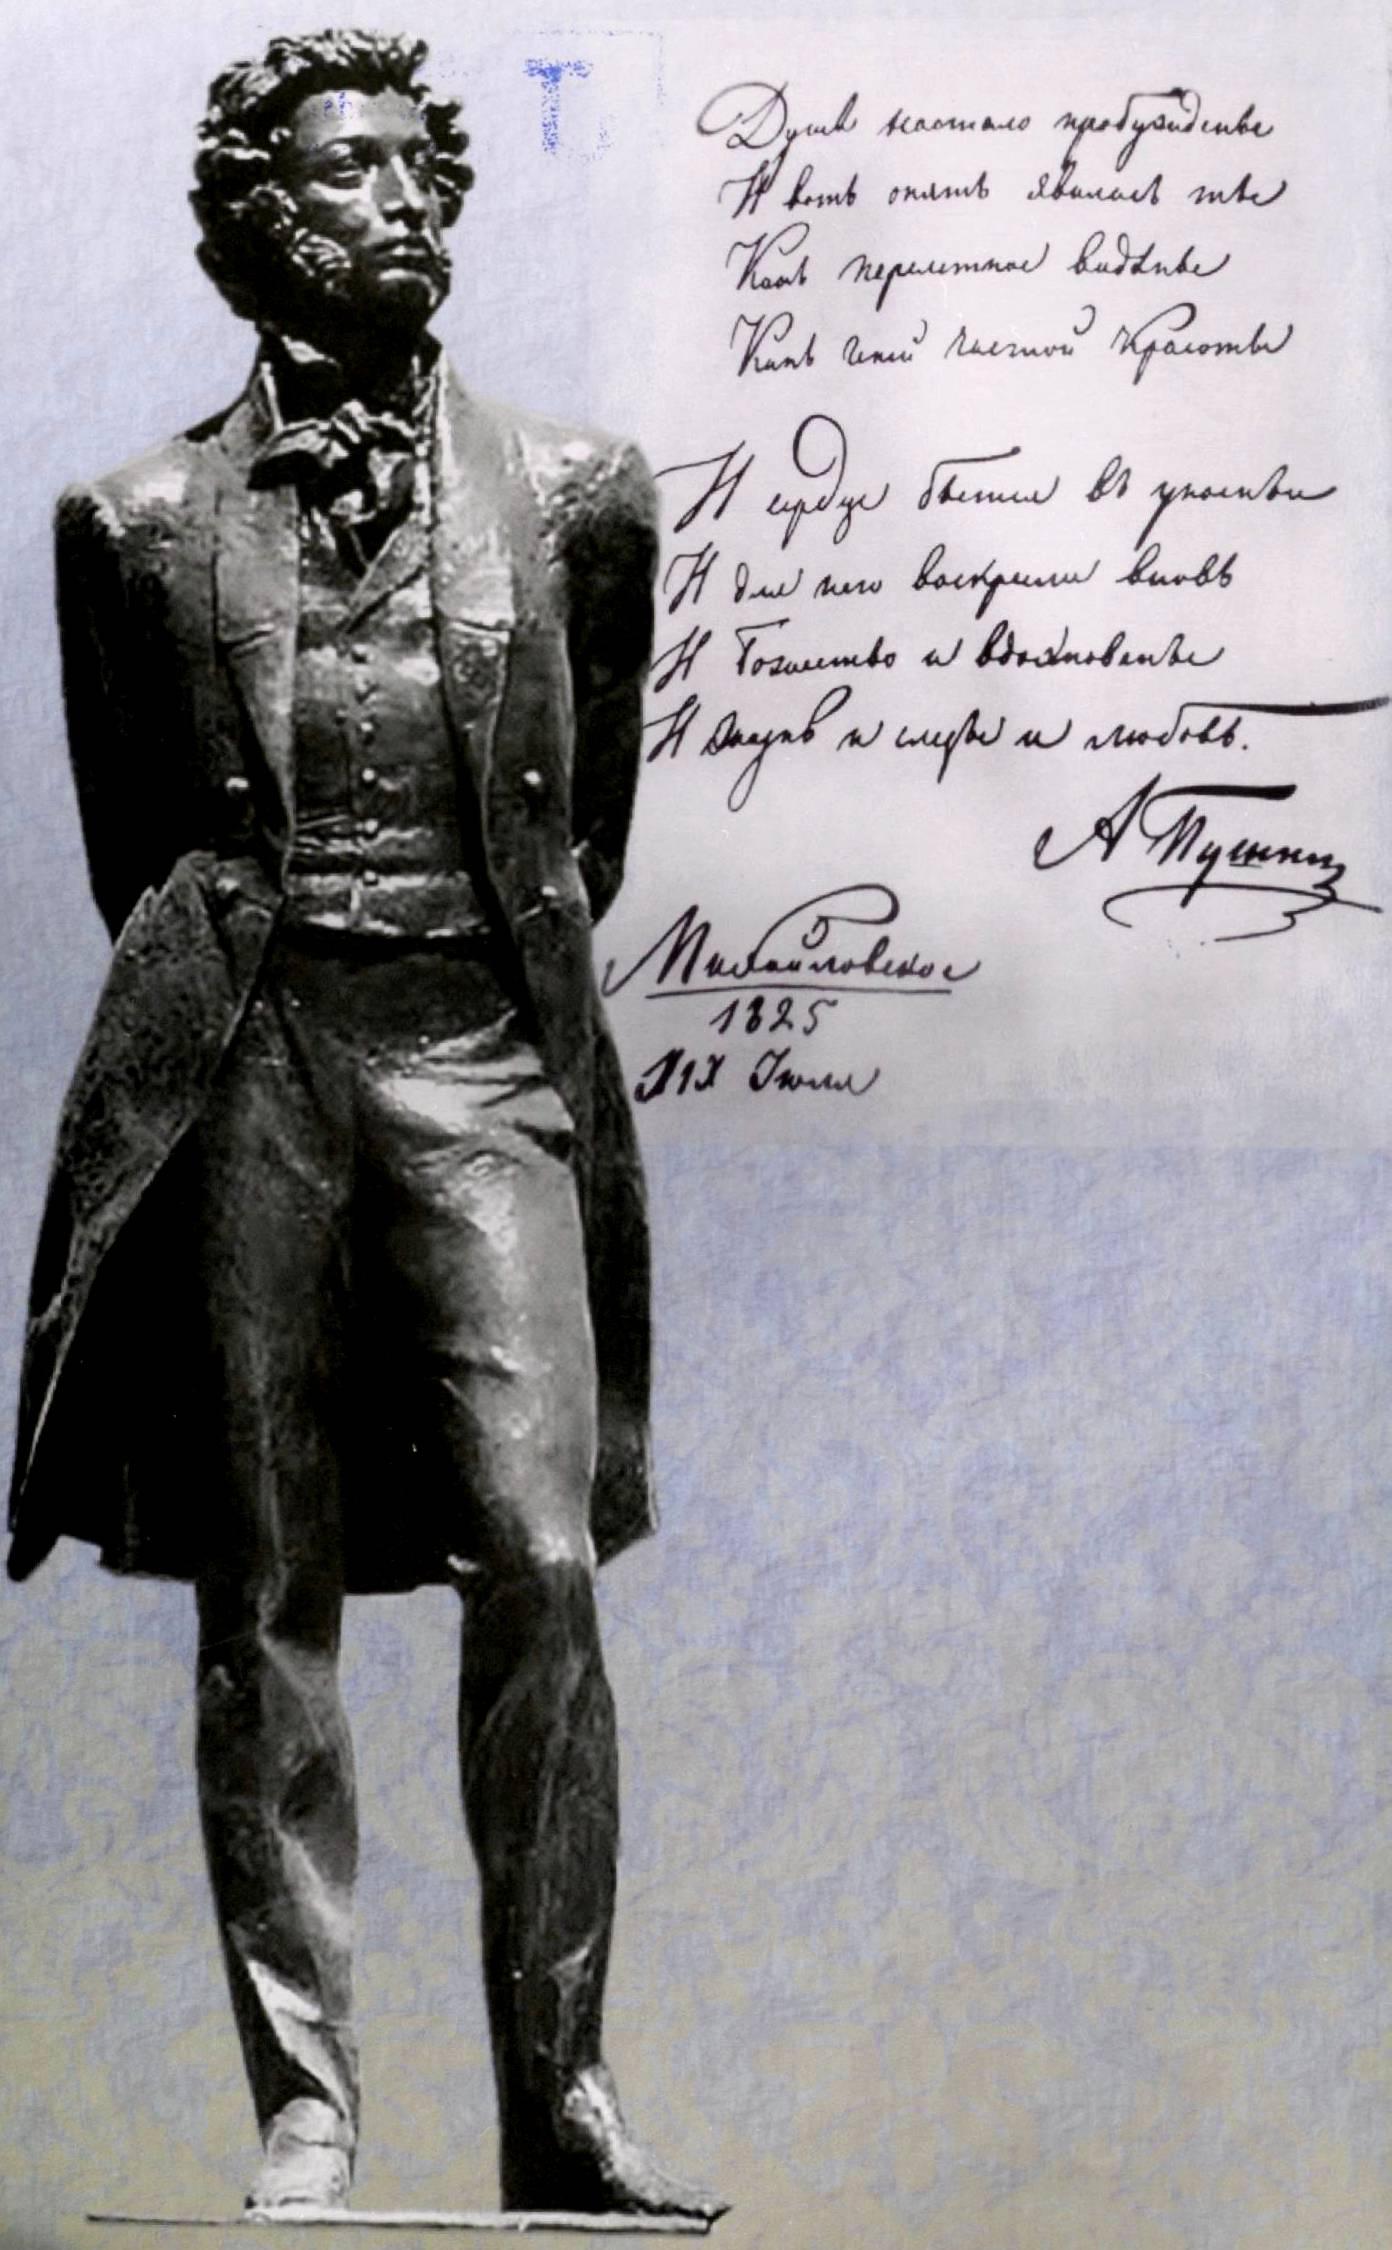 Т
Душѣ настало пробужденье
И вотъ опять явилась ты
Какъ перелетное видѣнье
Какъ геній чистой красоты
И сердце бьется въ упоеньи
И для него воскресли вновь
И Божество и вдохновенье
И жизнь и слезы и любовь.
А Пушкин
Михайловское
1825
XIX Іюля